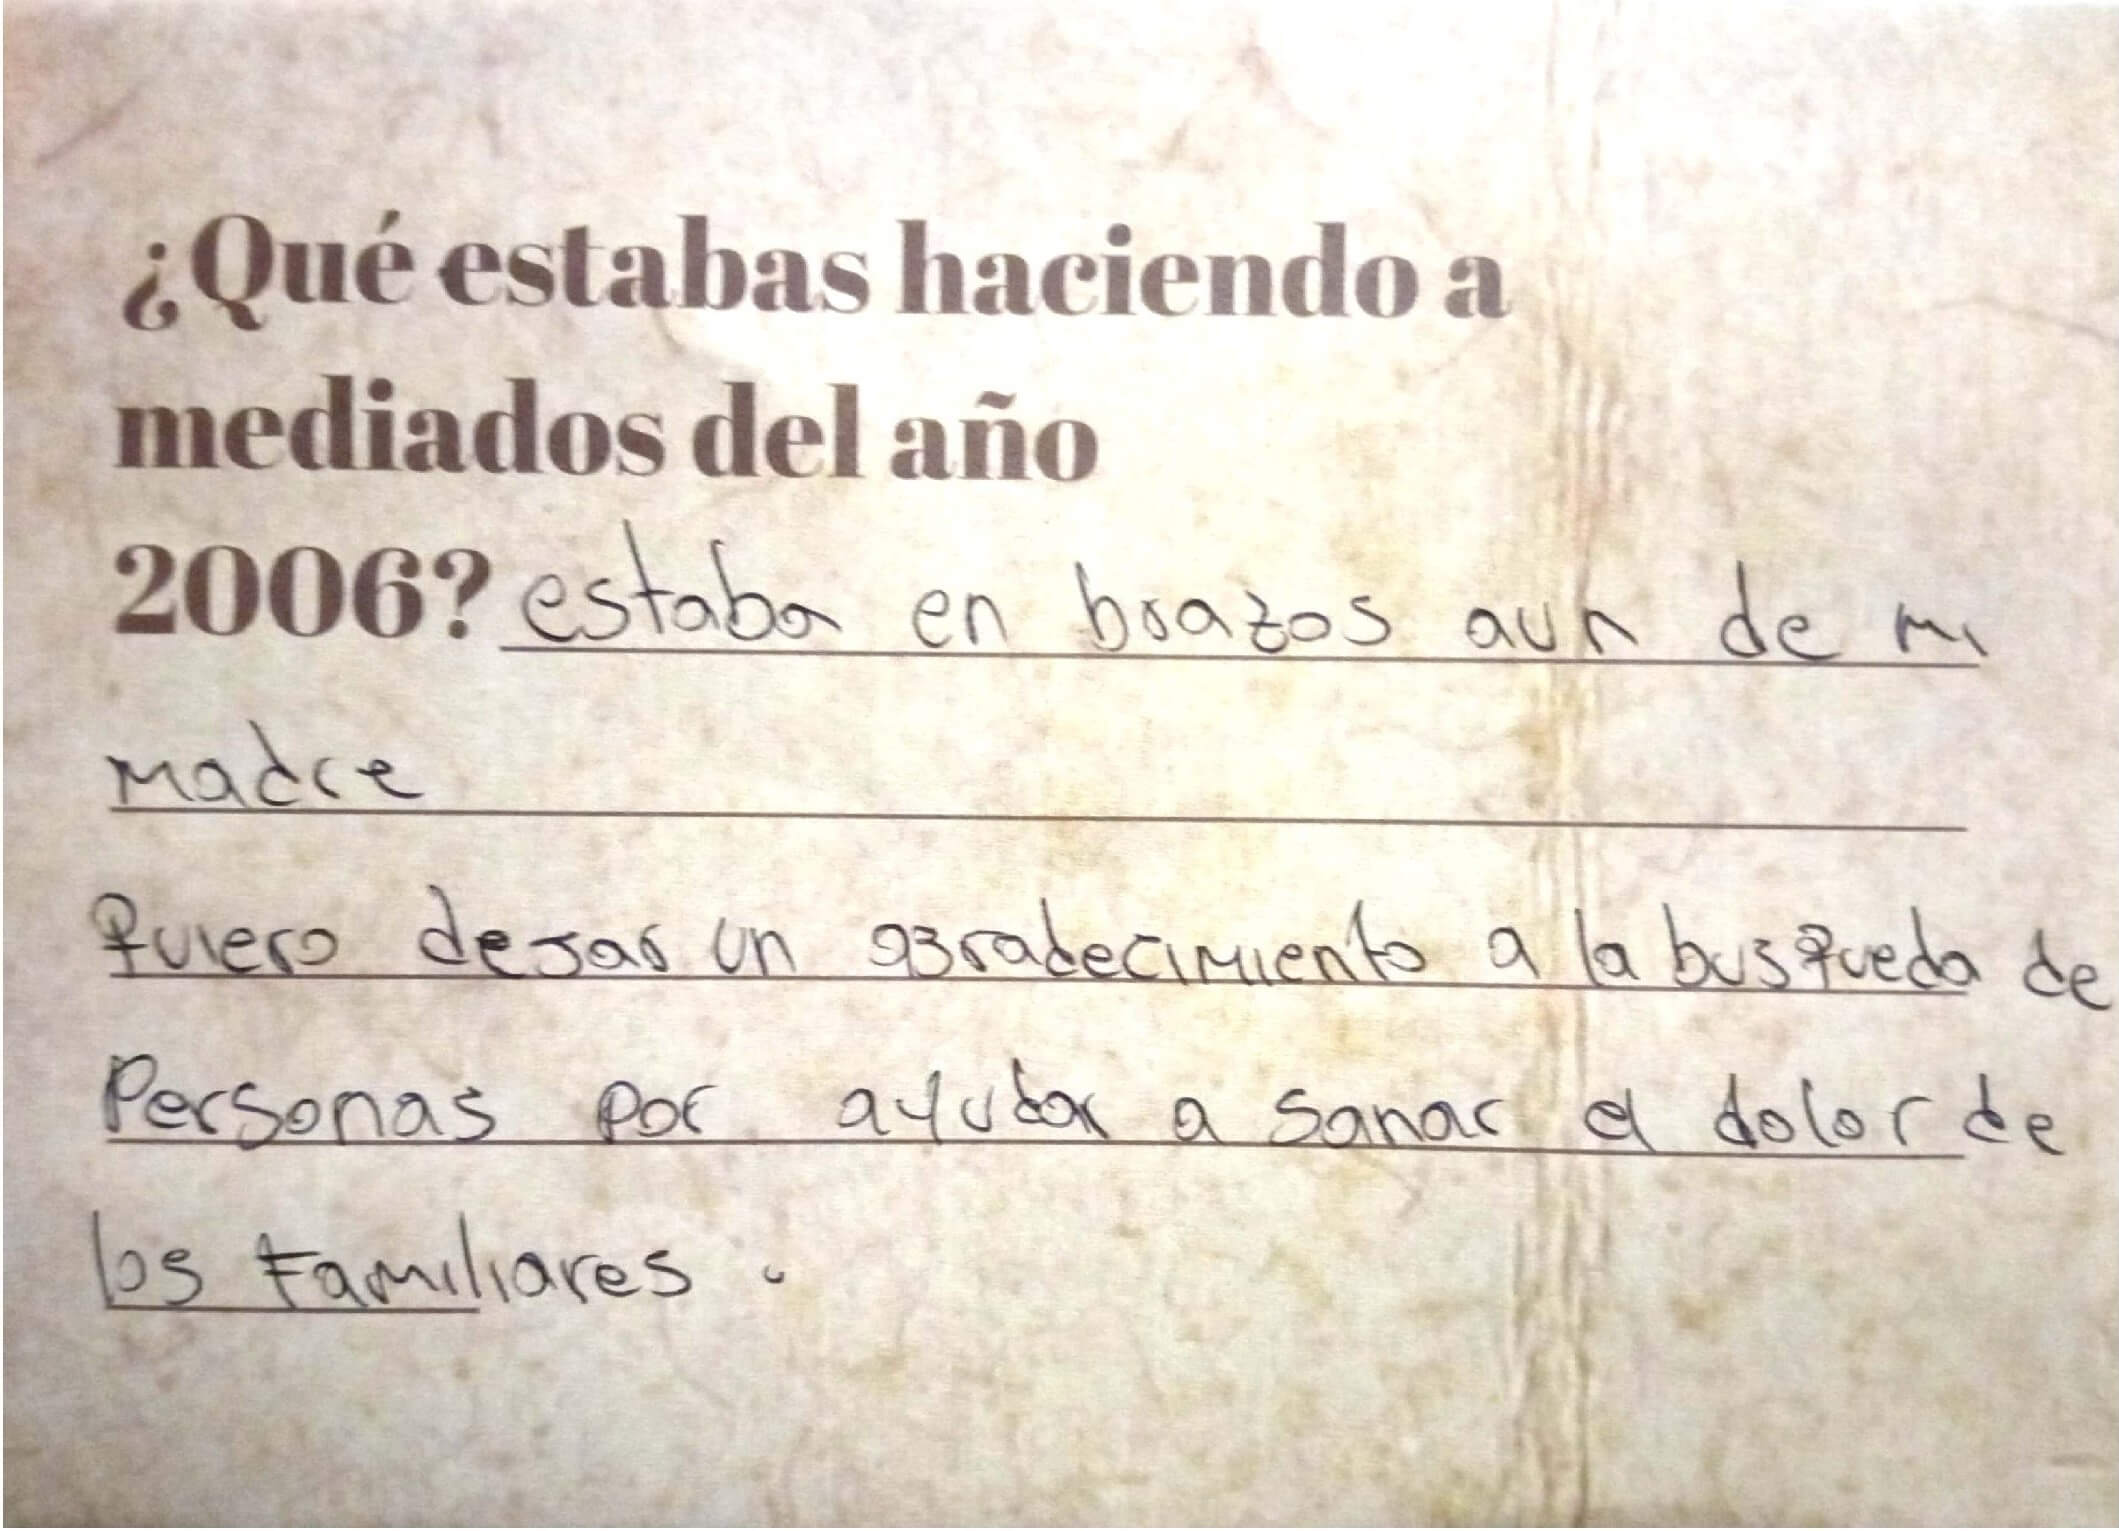 ¿Qué estabas haciendo a
mediados del año
2006? estaba en brazos aun de mi
madre
quiero dejar un agradecimiento a la busqueda de
Personas por ayudar a sanar el dolor de
los Familiares.